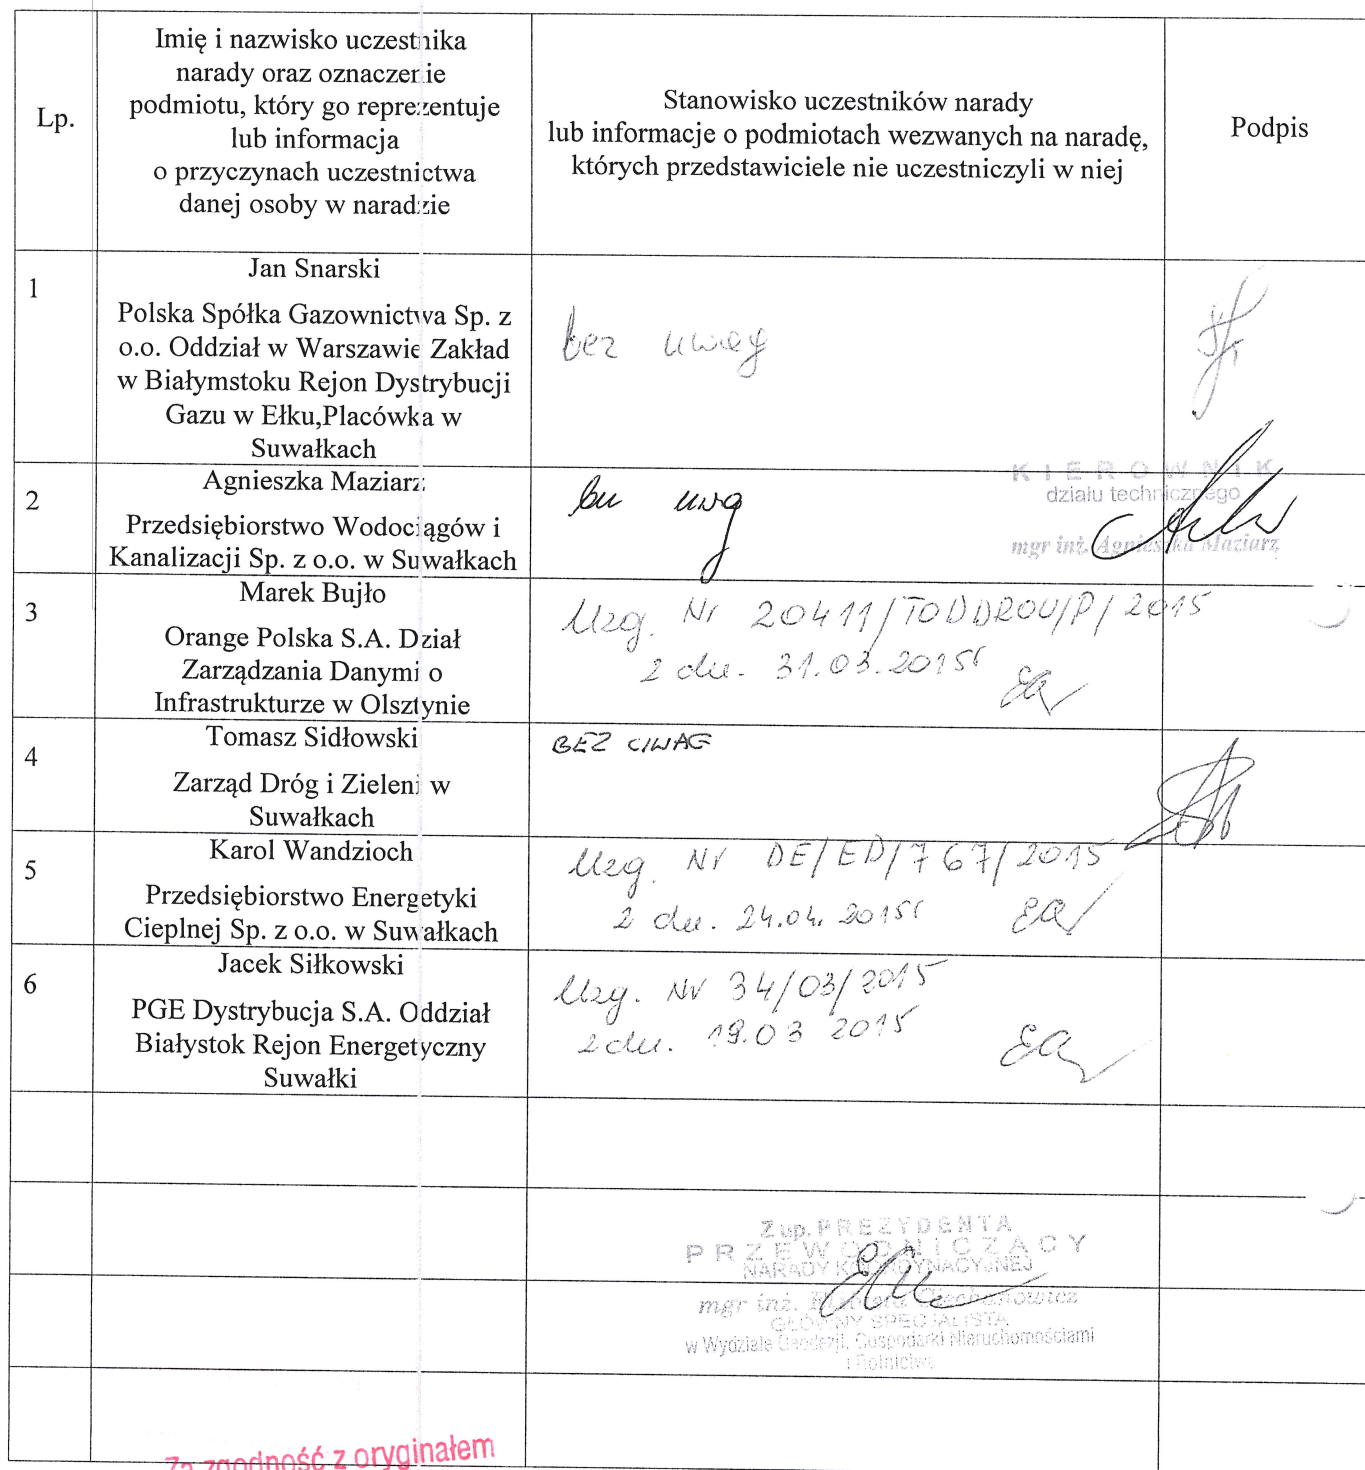 Lp.
Imię i nazwisko uczestnika
narady oraz oznaczenie
podmiotu, który go reprezentuje
lub informacja
o przyczynach uczestnictwa
danej osoby w naradzie
Stanowisko uczestników narady
lub informacje o podmiotach wezwanych na naradę,
których przedstawiciele nie uczestniczyli w niej
Podpis
1
Jan Snarski
Polska Spółka Gazownictwa Sp. z
o.o. Oddział w Warszawie Zakład
w Białymstoku Rejon Dystrybucji
Gazu w Ełku,Placówka w
Suwałkach
bez uwag
2
Agnieszka Maziarz
Przedsiębiorstwo Wodociągów i
Kanalizacji Sp. z o.o. w Suwałkach
bez uwag
KIEROWNIK
działu technicznego
mgr inż. Agnieszka Maziarz
3
Marek Bujło
Orange Polska S.A. Dział
Zarządzania Danymi o
Infrastrukturze w Olsztynie
Uzg. Nr 20411/TODDROU/P/2015
z dn. 31.03.2015r
4
Tomasz Sidłowski
Zarząd Dróg i Zieleni w
Suwałkach
BEZ UWAG
5
Karol Wandzioch
Przedsiębiorstwo Energetyki
Cieplnej Sp. z o.o. w Suwałkach
Uzg. Nr DE/ED/767/2015
z dn. 24.04.2015r
6
Jacek Siłkowski
PGE Dystrybucja S.A. Oddział
Białystok Rejon Energetyczny
Suwałki
Uzg. Nr 34/03/2015
z dn. 19.03 2015
Z up. PREZYDENTA
PRZEWODNICZĄCY
NARADY KOORDYNACYJNEJ
mgr inż. Ciechanowicz
GŁÓWNY SPECJALISTA
w Wydziale Geodezji, Gospodarki Nieruchomościami
i Rolnictwa
Za zgodność z oryginałem